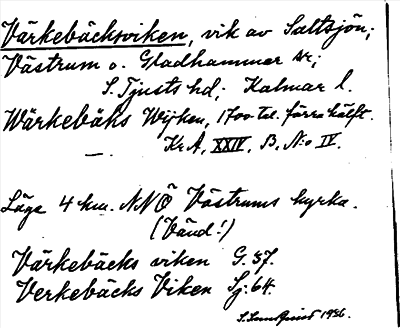 Värkebäcksviken, vik av Saltsjön;
Västrum o. Gladhammar snr;
S. Tjusts hd; Kalmar l.
Wärkebäks Wijken, 1700-tal. förra hälft.
Kr.A, XXIV, B, N:o IV.
Läge 4 km. NNÖ Västrums kyrka.
(Vänd!)
Värkebäcks viken G. 37.
Verkebäcks Viken Sj. 64.
1936.